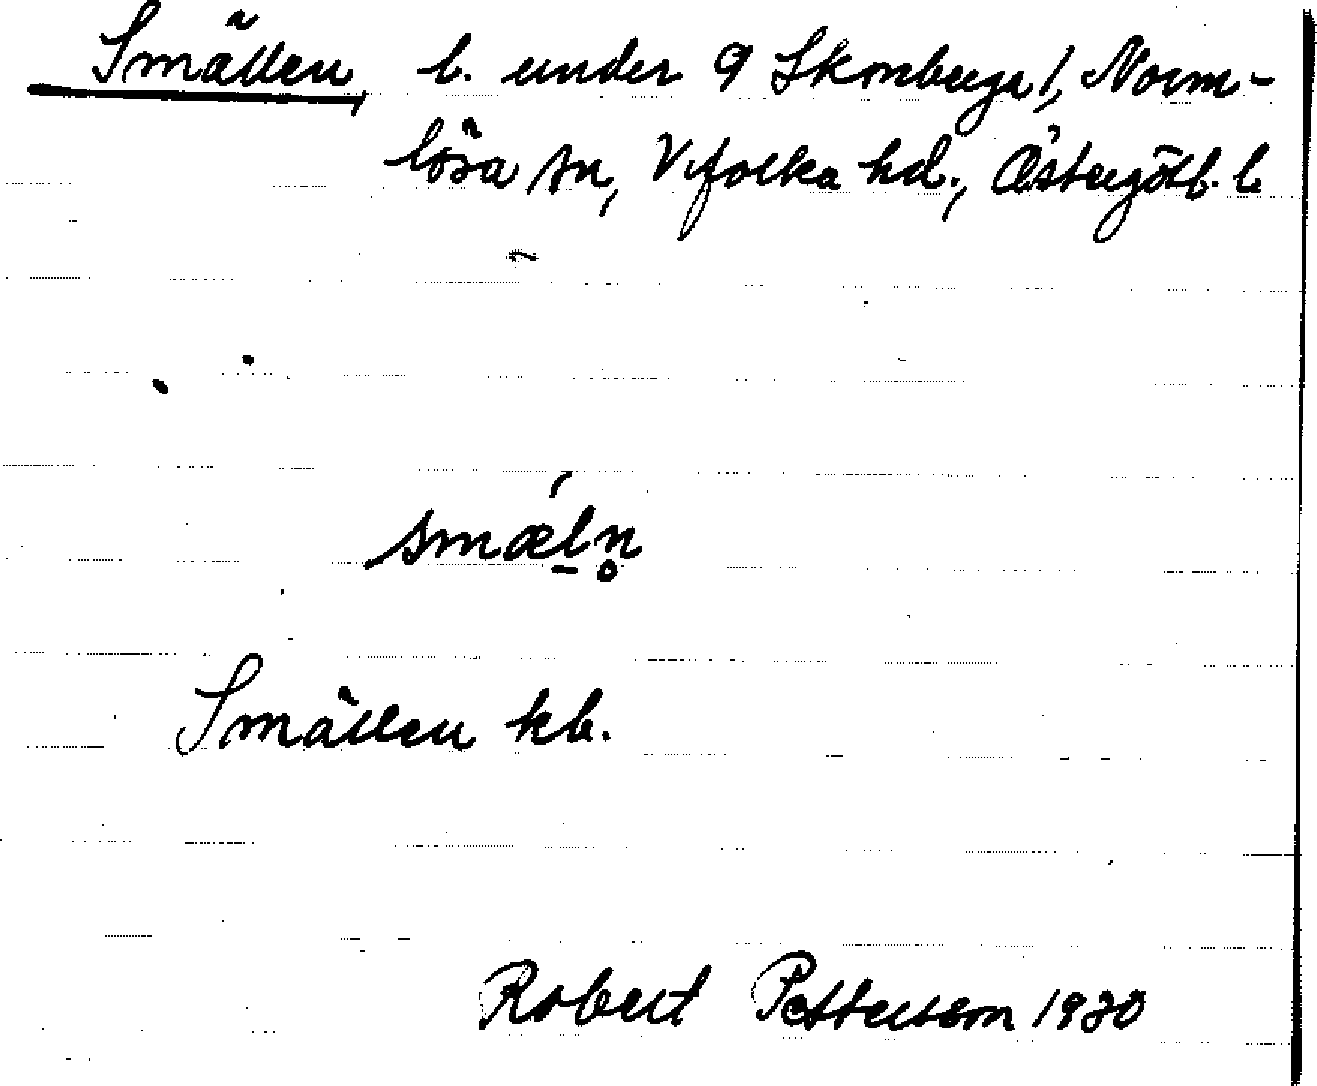 Smällen, l. under 9 Skonberga 1, Norm-
lösa sn, Vifolka hd., Östergötl. l.
smæ´l̠n̥
Smällen kb.
Robert Pettersson 1930